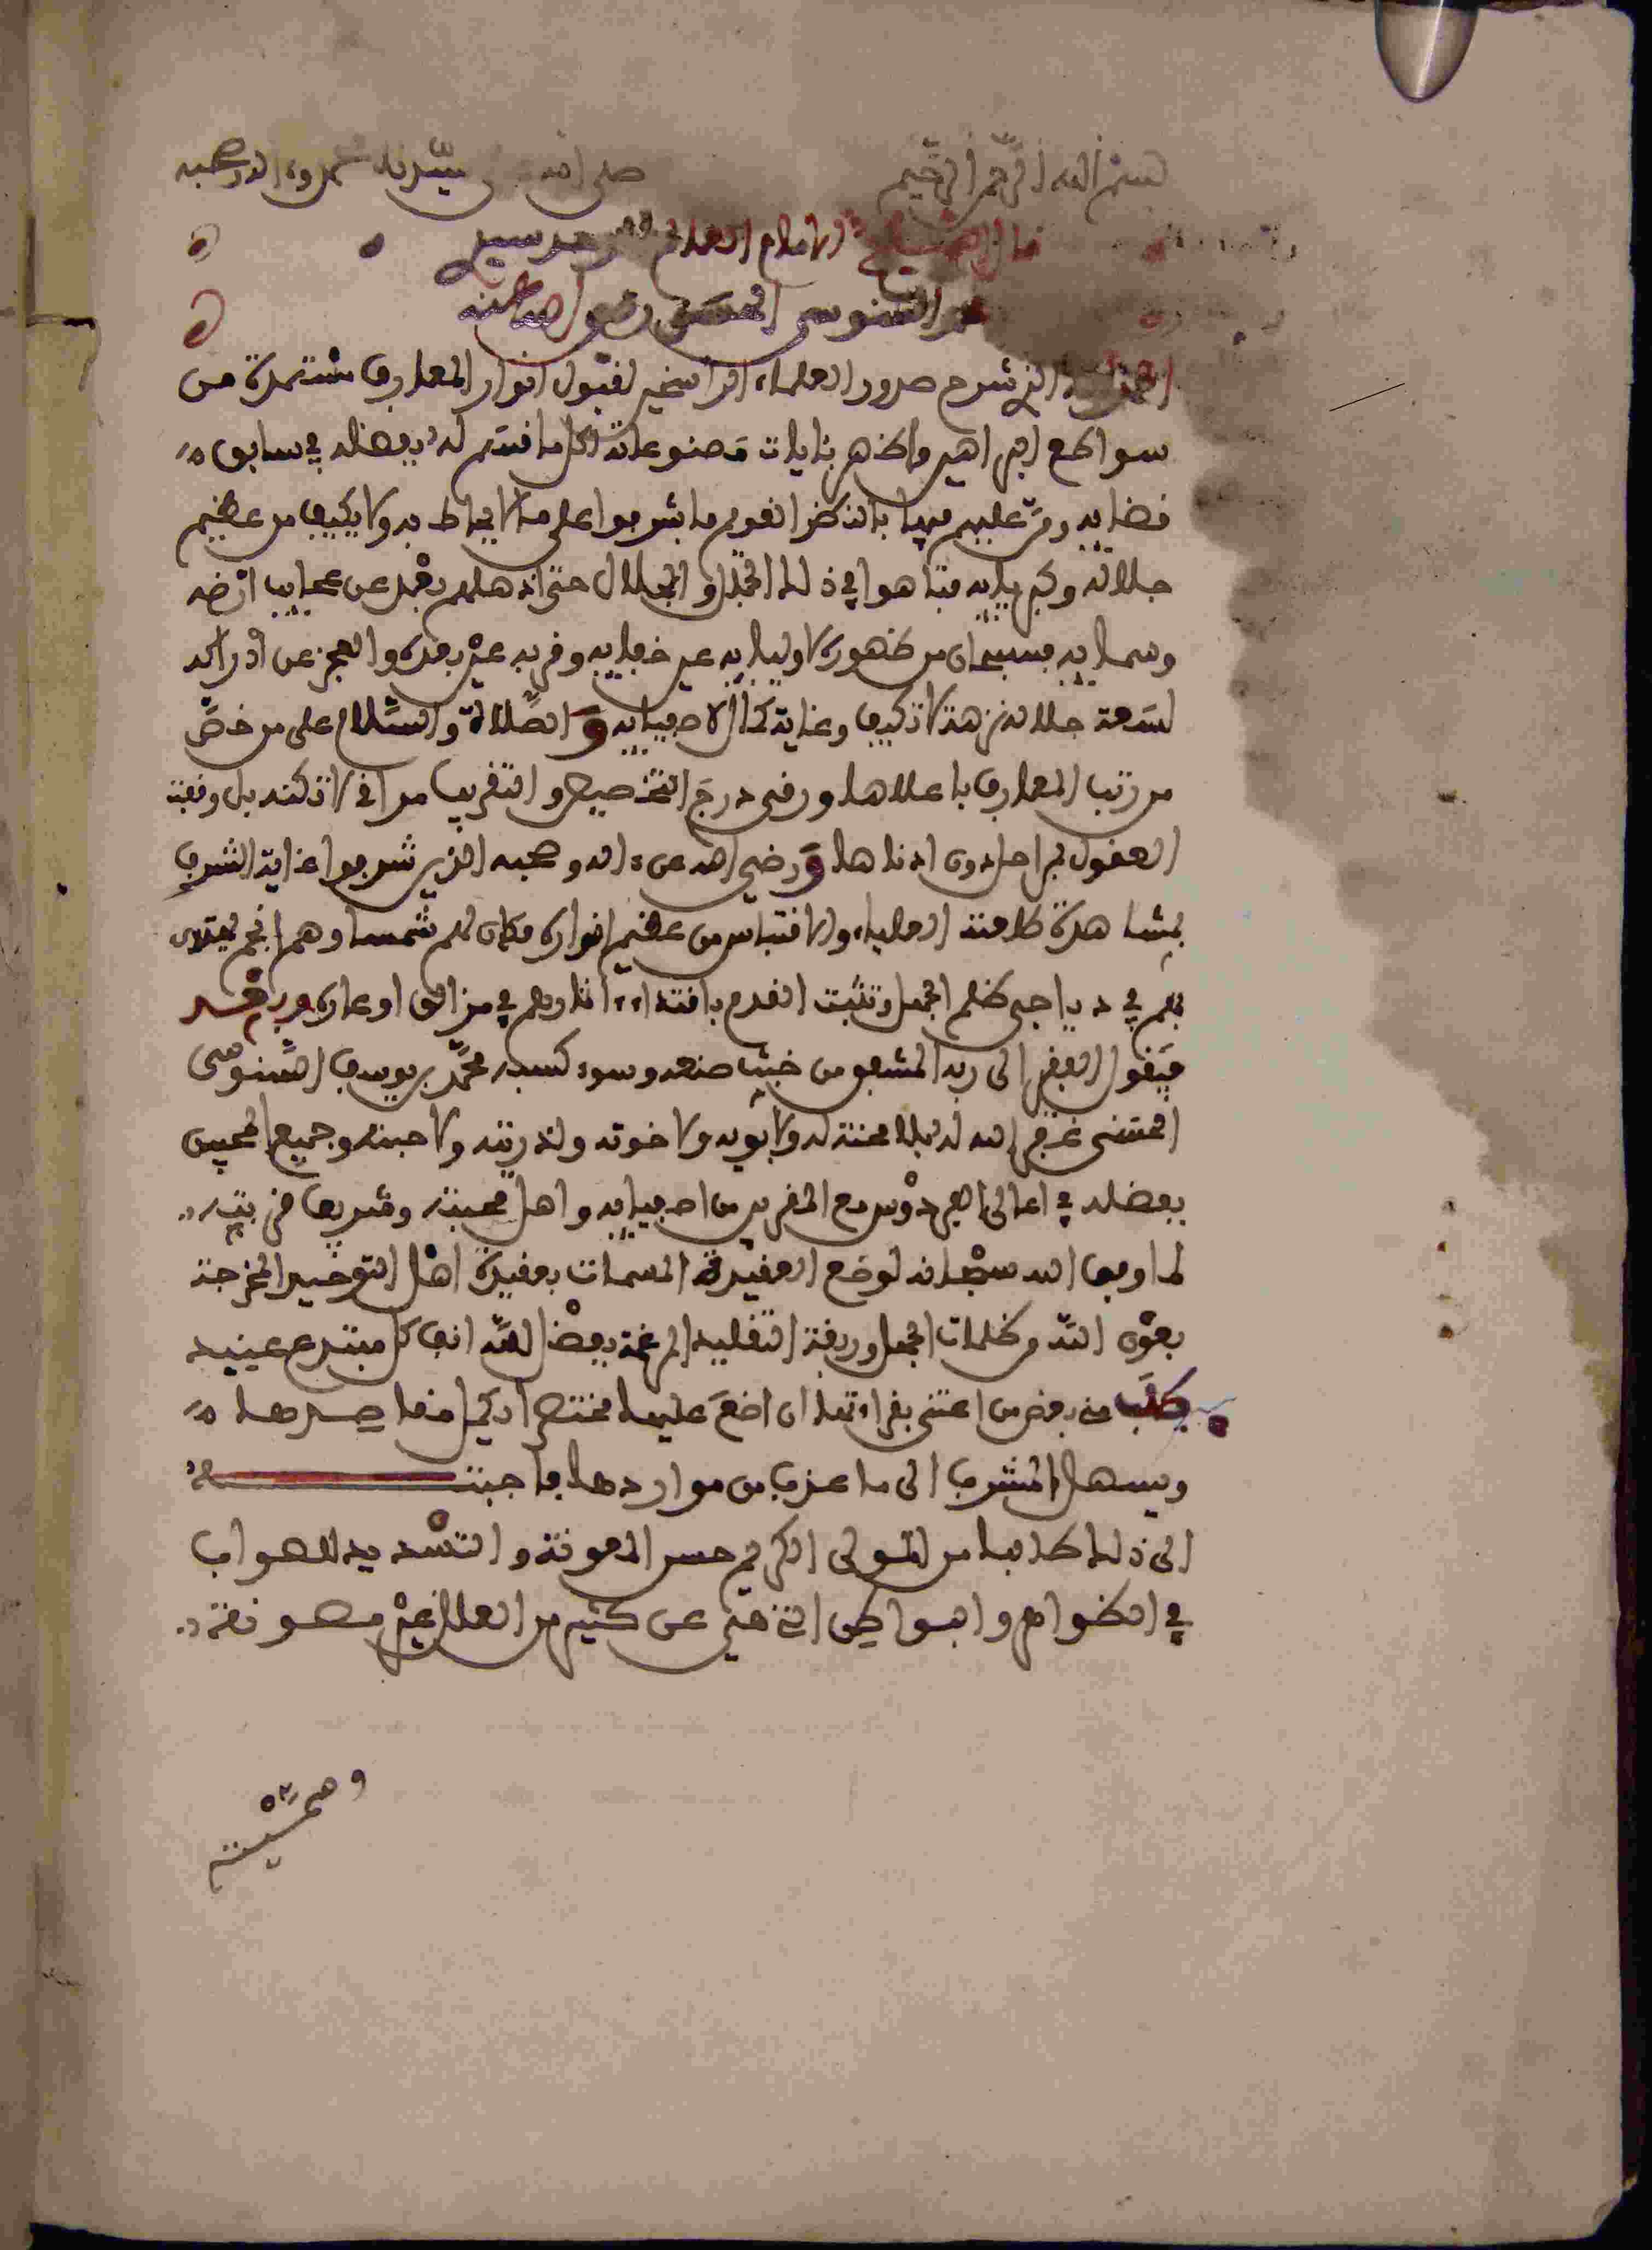 بسم الله الرحمن الرحيم صلى الله سيدنا محمد وءاله وصحبه
قال الشيخ الامام العالم سيدي
محمد السنوسي الحسني رضي الله عنه
الحمد لله الذي شرح صدور العلماء الراسخين لقبول انوار المعارف مستمدة من
سواطع البراهين واظهر بئايات مصنوعاته لكل ما قسم له بفضله في سابق
قضايه ومن عليهم فيها بالنظر القويم فاشرفوا على ما لا يحاط به ولا يكيف من عظيم
جلاله وكبريايه فتاهوا في ذلك الجمال والجلال حتى اذهلهم بعد عن عجايب ارضه
وسمايه فسبحان من ظهوره لاوليايه عين خفايه وقربه عين بعده والعجز عن ادراكه
لسعة جلاله نزهة لا تكيف وغاية كمال لاصفيايه والصلاة والسلام على من خص
من رتب المعارف باعلاها ورقى درج التخصيص والتقريب مراقي لا تكنه بل وقفت
العقول بمراحل دون ادناها ورضي الله عن ءاله وصحبه الذين شرفوا غاية الشرف
بمشاهدة طلعته العلياء والاقتباس من عظيم انواره فكان لهم شمسا وهم انجم يهتدى
بهم في دياجي ظلم الجهل وتثبت القدم باقتداء ءاثارهم في مزالق اوعاره وبعد
فيقول الفقير الى ربه المشفق من خبث صنعه وسوء كسبه محمد بن يوسف السنوسي
الحسني غفر الله له بلا محنة له ولابويه ولاخوته ولذريته ولاحبته وجميع المحبين
بفضله في اعالي الفردوس مع المقربين من اصفيايه واهل محبته وشريف قربته
لما وفق الله سبحانه لوضع العقيدة المسمات بعقيدة اهل التوحيد المخرجة
بعون الله من ظلمات الجهل وربقة التقليد المرغمة بفضل الله انف كل مبتدع عنيد
طلب مني بعض من اعتنى بقراءتها ان اضع عليها مختصرا يكمل مقاصدها
ويسهل المشرب الى ما عذب من مواردها فاجبته
الى ذلك طالبا من المولى الكريم حسن المعونة والتسديد للصواب
في الظواهر والبواطن التي هي عن كثير من العلل غير مصونة
وهمته